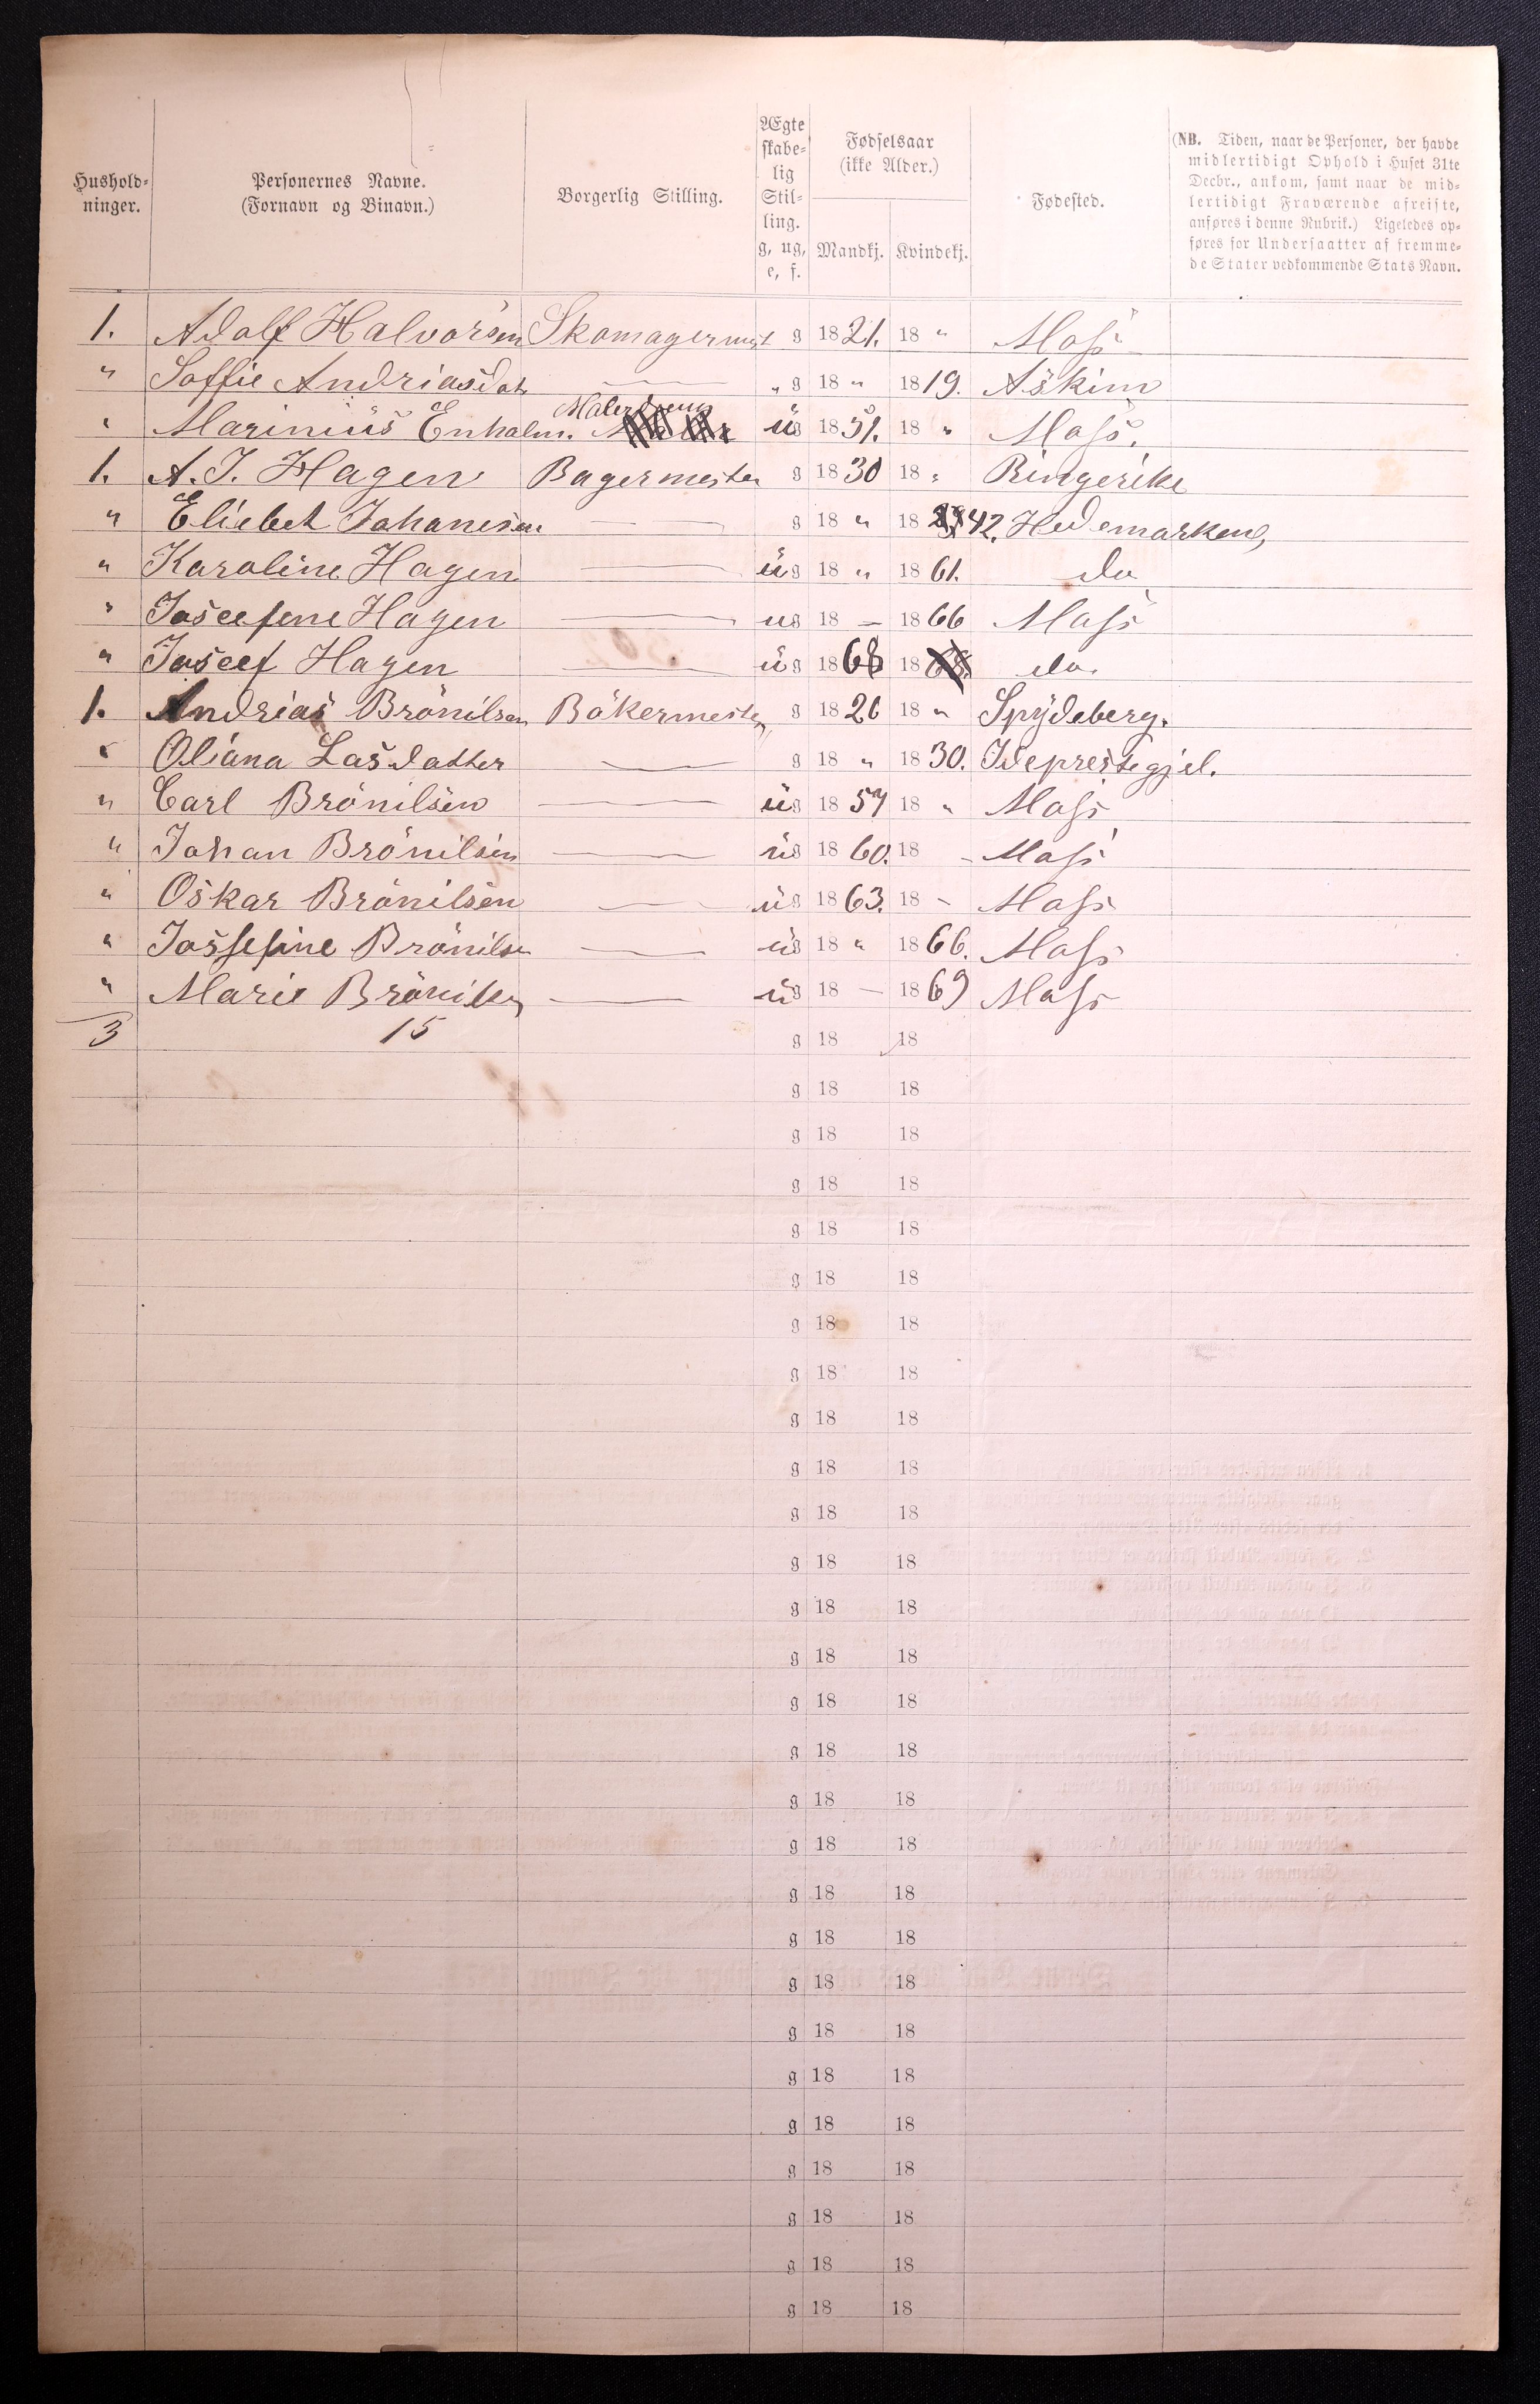 Hushold-
ninger.
Personernes Navne.
(Fornavn og Binavn.)
Borgerlig Stilling.
Ægte
skabe-
lig
Stil-
ling.
g, ug,
e, f.
Fødselsaar
(ikke Alder.)
Mandkj. Kvindekj.
Fødested.
(NB. Tiden, naar de Personer, der havde
midlertidigt Ophold i Huset 31te
Decbr., ankom, samt naar de mid-
lertidigt Fraværende afreiste,
anføres i denne Rubrik.) Ligeledes op-
føres for Undersaatter af fremme-
de Stater vedkommende Stats Navn.
1. Adolf Halvorsen Skomagermst g 1821. 18 " Moss
" Soffie Andriasdat — " g 18 " 1819. Askim
" Marinius Enholm. ug 1851. 18 " Moss.
1. A. J. Hagen Bagermester g 1830 18 " Ringerike
" Eliebet Johanesen — g 18 " 1842. Hedemarken,
" Karoline Hagen — ug 18 " 1861. do
" Joseefene Hagen — ug 18 — 1866 Moss
" Joseef Hagen — ug 1868 18 do.
1. Andrias Brönilsen Bökermester g 1826 18 " Spydeberg.
" Oliana Lasdatter — g 18 " 1830. Ideprestegjel.
" Carl Brönilsen — ug 1857 18 " Moss
" Johan Brönilsen — ug 1860. 18 - Moss
" Oskar Brönilsen — ug 1863. 18 - Moss
" Jossefine Brönilsen — ug 18 " 1866. Moss
" Marie Brönilsen — ug 18 — 1869 Moss
3 15 g 18 18
g 18 18
g 18 18
g 18 18
g 18 18
g 18 18
g 18 18
g 18 18
g 18 18
g 18 18
g 18 18
g 18 18
g 18 18
g 18 18
g 18 18
g 18 18
g 18 18
g 18 18
g 18 18
g 18 18
g 18 18
g 18 18
g 18 18
g 18 18
g 18 18
g 18 18
g 18 18
g 18 18